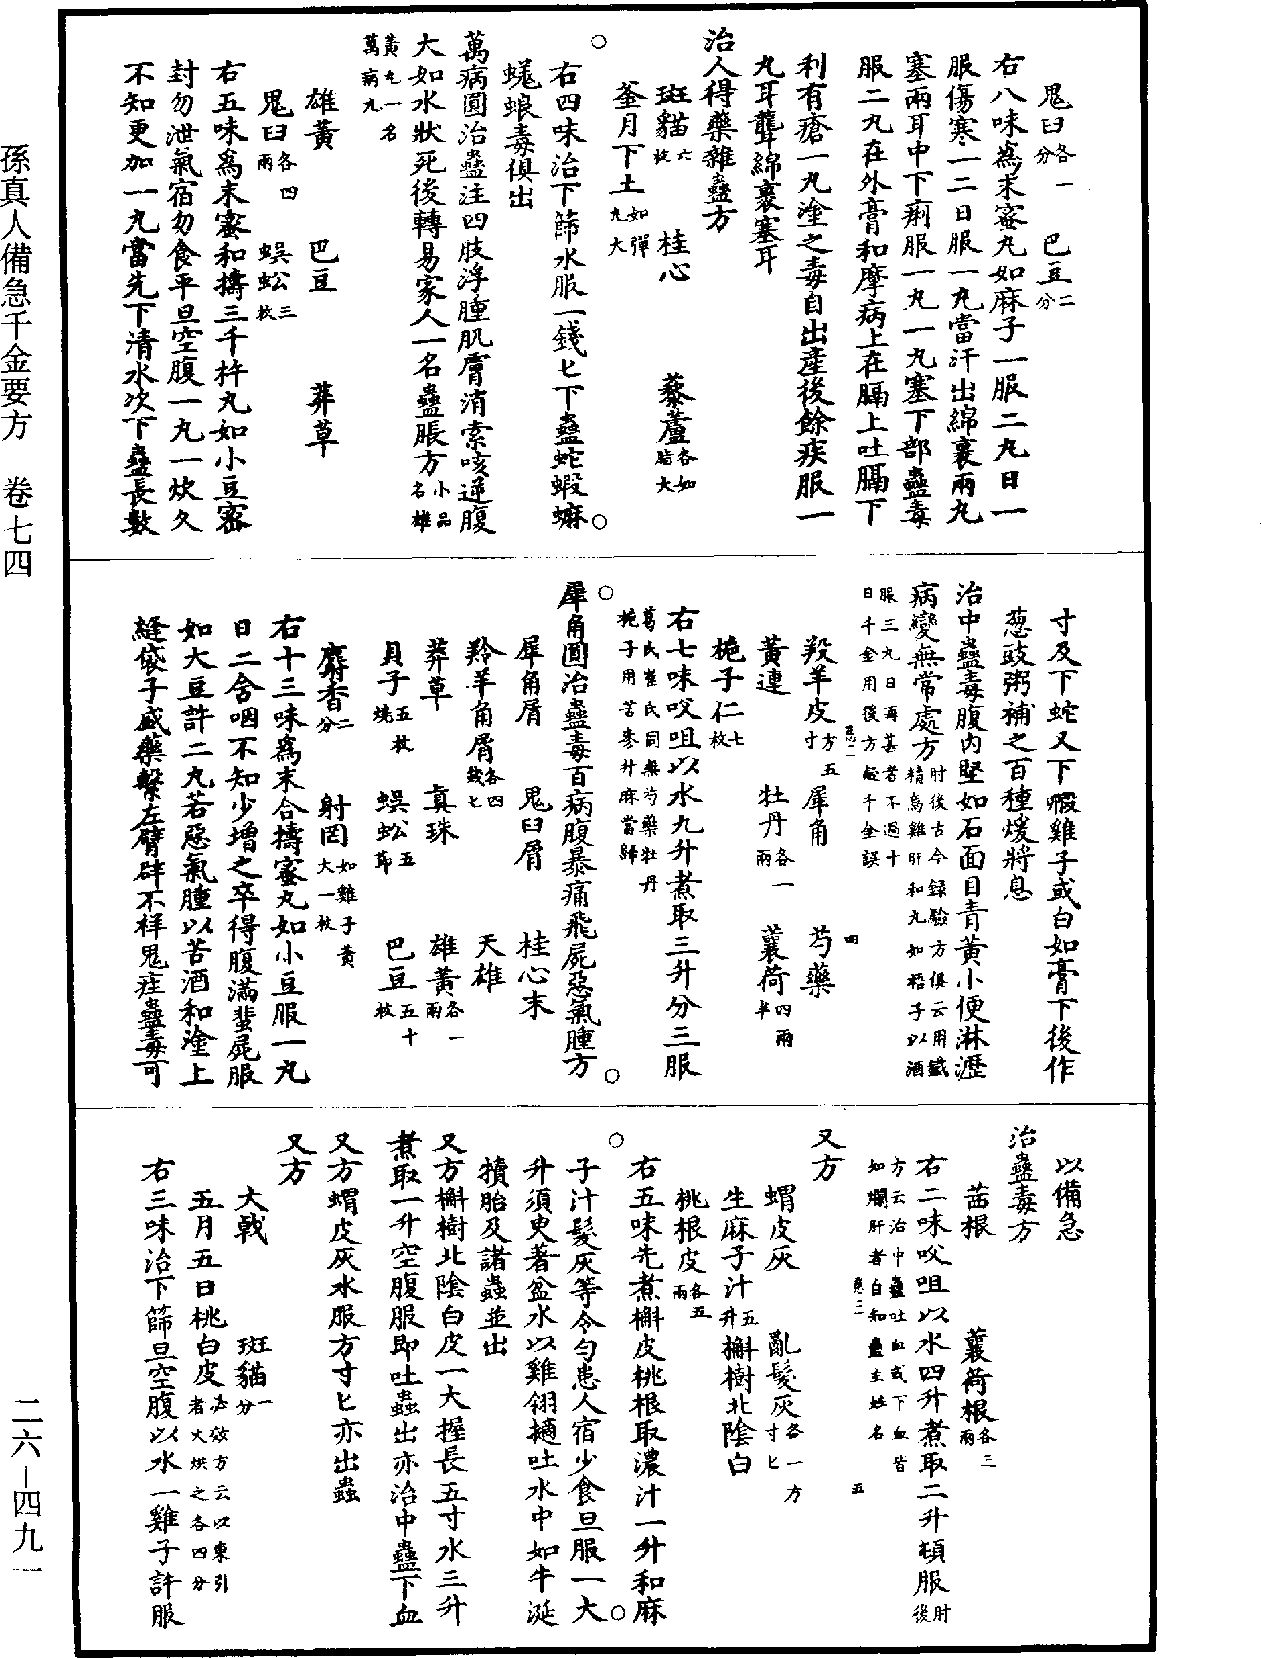 孫真人備急千金要方　卷七四
二六－四九一
鬼臼各一分　巴豆二分
右八味為末蜜丸如麻子一服二丸日一
服傷寒一二日服一丸當汗出綿裹兩丸
塞兩耳中下痢服一丸一丸塞下部蠱毒
服二丸在外膏和摩病上在膈上吐膈下
利有瘡一丸塗之毒自出產後餘疾服一
丸耳聾綿裹塞耳
治人得藥雜蠱方
斑貓六枚　桂心　藜蘆各如指大
釜月下土如彈丸大
右四味治下篩水服一錢匕下蠱蛇蝦蟆
蜣蜋毒俱出
萬病圓治蠱注四肢浮腫肌膚消索咳逆腹
大如水狀死後轉易家人一名蠱脹方小品名雄
黃丸一名萬病丸
雄黃　巴豆　莽草
鬼臼各四兩　蜈蚣三枚
右五味為末蜜和擣三千杵丸如小豆密
封勿泄氣宿勿食平旦空腹一丸一炊久
不知更加一丸當先下清水次下蠱長數
寸及下蛇又下㲉雞子或白如膏下後作
葱豉粥補之百種煖將息
治中蠱毒腹內堅如石面目青黃小便淋瀝
病變無常處方肘後古今錄驗方俱云用鐵精烏雞肝和丸如梧子以酒
服三丸日再甚者不過十日千金用後方疑千金誤
羖羊皮方五寸　犀角　芍藥
黃連　牡丹各一兩　蘘荷四兩半
梔子仁七枚
右七味㕮咀以水九升煮取三升分三服
葛氏崔氏同無芍藥牡丹梔子用苦參升麻當歸
犀角圓治蠱毒百病腹暴痛飛屍惡氣腫方
犀角屑　鬼臼屑　桂心末
羚羊角屑各四錢匕　天雄
莽草　真珠　雄黃各一兩
貝子五枚燒　蜈蚣五節　巴豆五十枚
麝香二分　射罔如雞子黃大一枚
右十三味為末合擣蜜丸如小豆服一丸
日二含咽不知少增之卒得腹滿蜚屍服
如大豆許二丸若惡氣腫以苦酒和塗上
縫袋子盛藥繫左臂辟不祥鬼疰蠱毒可
以備急
治蠱毒方
茜根　蘘荷根各三兩
右二味㕮咀以水四升煮取二升頓服肘後
方云治中蠱吐血或下血皆如爛肝者自知蠱主姓名
又方
蝟皮灰　亂髮灰各一方寸匕
生麻子汁五升　槲樹北陰白
桃根皮各五兩
右五味先煮槲皮桃根取濃汁一升和麻
子汁髮灰等令勻患人宿少食旦服一大
升須臾著盆水以雞翎擿吐水中如牛涎
犢胎及諸蟲並出
又方槲樹北陰白皮一大握長五寸水三升
煮取一升空腹服即吐蟲出亦治中蠱下血
又方蝟皮灰水服方寸匕亦出蟲
又方
大戟　斑貓一分
五月五日桃白皮必效方云以東引者火烘之各四分
右三味治下篩旦空腹以水一雞子許服